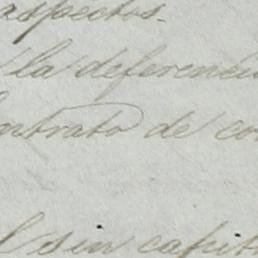 aspectos.
la deferencia
contrato de co
sin capit